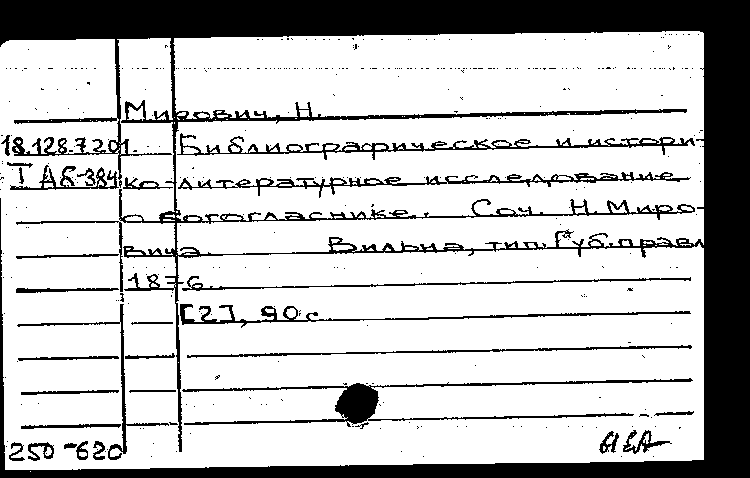 Мирович, Н.
18.128.7.201. Библиографическое и истори-
I АБ-384 ко-литературное исследование
о богогласнике. Соч. Н. Миро-
вича. Вильна, тип. Губ. правл
1876.
[2], 90 с
250-620